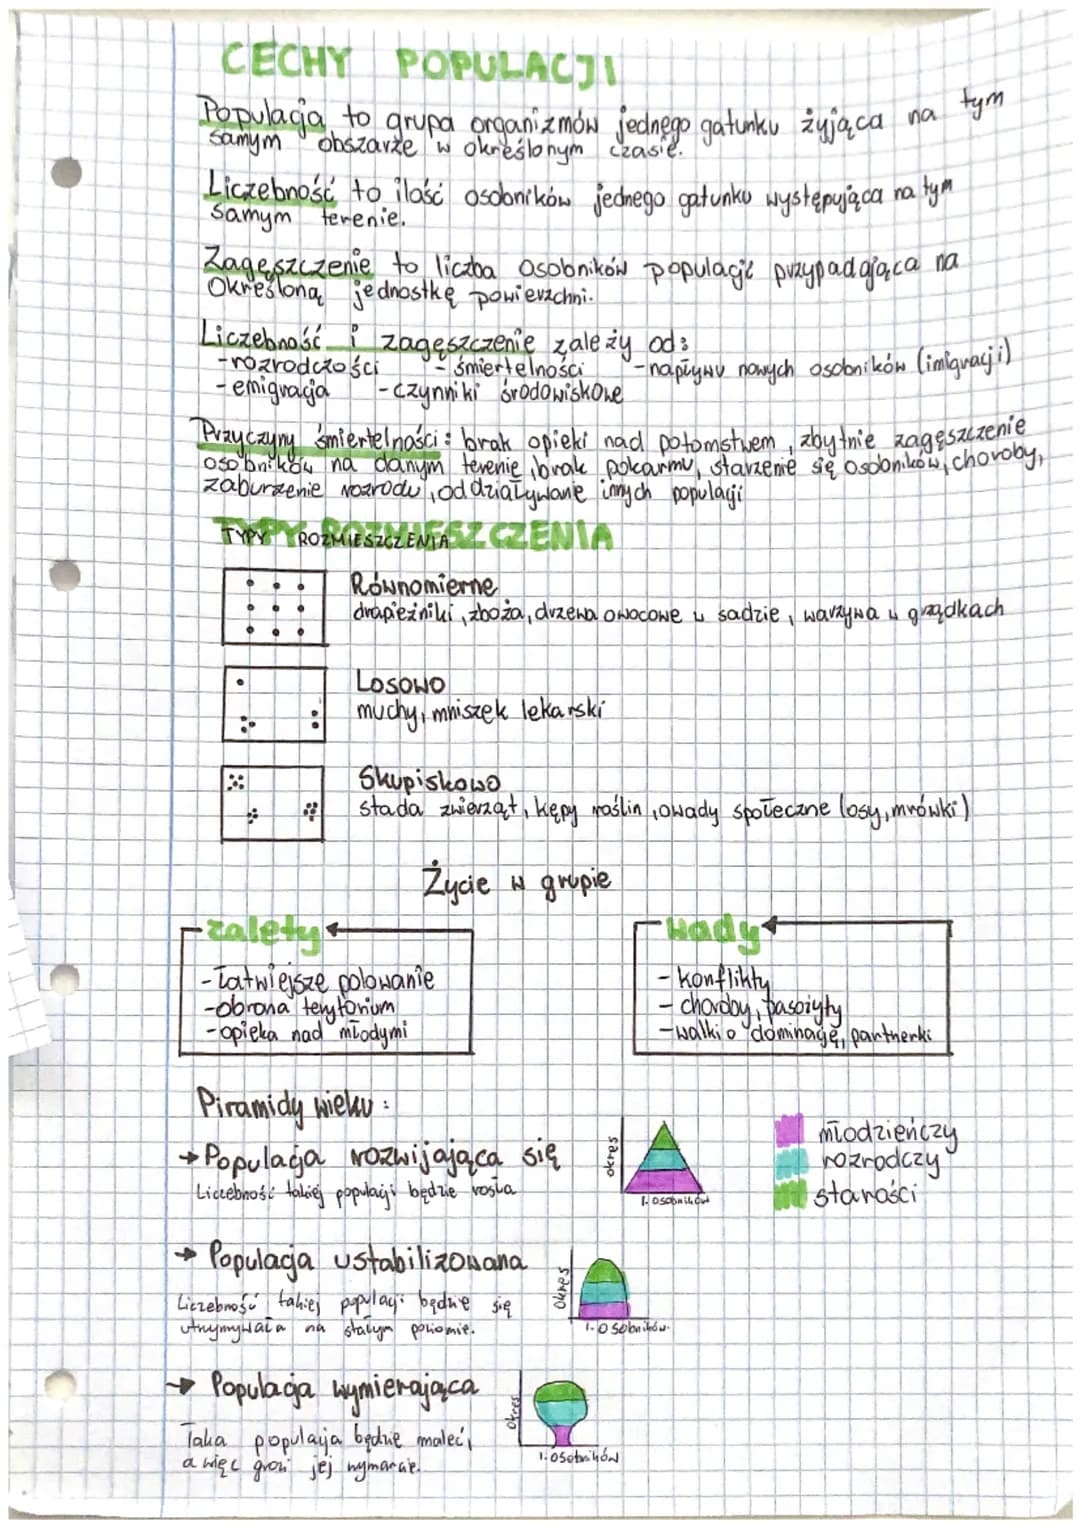 CECHY POPULACJI
Populacja to grupa organizmów jednego gatunku żyjąca na tym
samym obszarze w określonym czasie.
Liczebność to ilość osobników jednego gatunku występująca na tym
samym terenie.
Zagęszczenie to liczba osobników populacji przypadająca na
określoną jednostkę powierzchni.
Liczebność i zagęszczenie zależy od:
-rozrodczości -śmiertelności -napływu nowych osobników (imigracji)
-emigracja -czynniki środowiskowe
Przyczyny śmiertelności: brak opieki nad potomstwem, zbytnie zagęszczenie
osobników na danym terenie, brak pokarmu, starzenie się osobników, choroby,
zaburzenie rozrodu, oddziaływanie innych populacji
TYPY ROZMIESZCZENIA
Równomierne
drapieżniki, zboża, drzewa owocowe w sadzie, warzywa w grządkach
Losowo
muchy, mniszek lekarski
Skupiskowo
stada zwierząt, kępy roślin, owady społeczne (osy, mrówki)
Życie w grupie
zalety
-łatwiejsze polowanie
-obrona terytorium
-opieka nad młodymi
wady
-konflikty
-choroby, pasożyty
-walki o dominację, partnerki
Piramidy wieku:
→ Populacja rozwijająca się
Liczebność takiej populacji będzie rosła
okres
l. osobników
młodzieńczy
rozrodczy
starości
→ Populacja ustabilizowana
Liczebność takiej populacji będzie się
utrzymywała na stałym poziomie.
okres
l. osobników
→ Populacja wymierająca
Taka populacja będzie maleć,
a więc grozi jej wymarcie.
okres
l. osobników